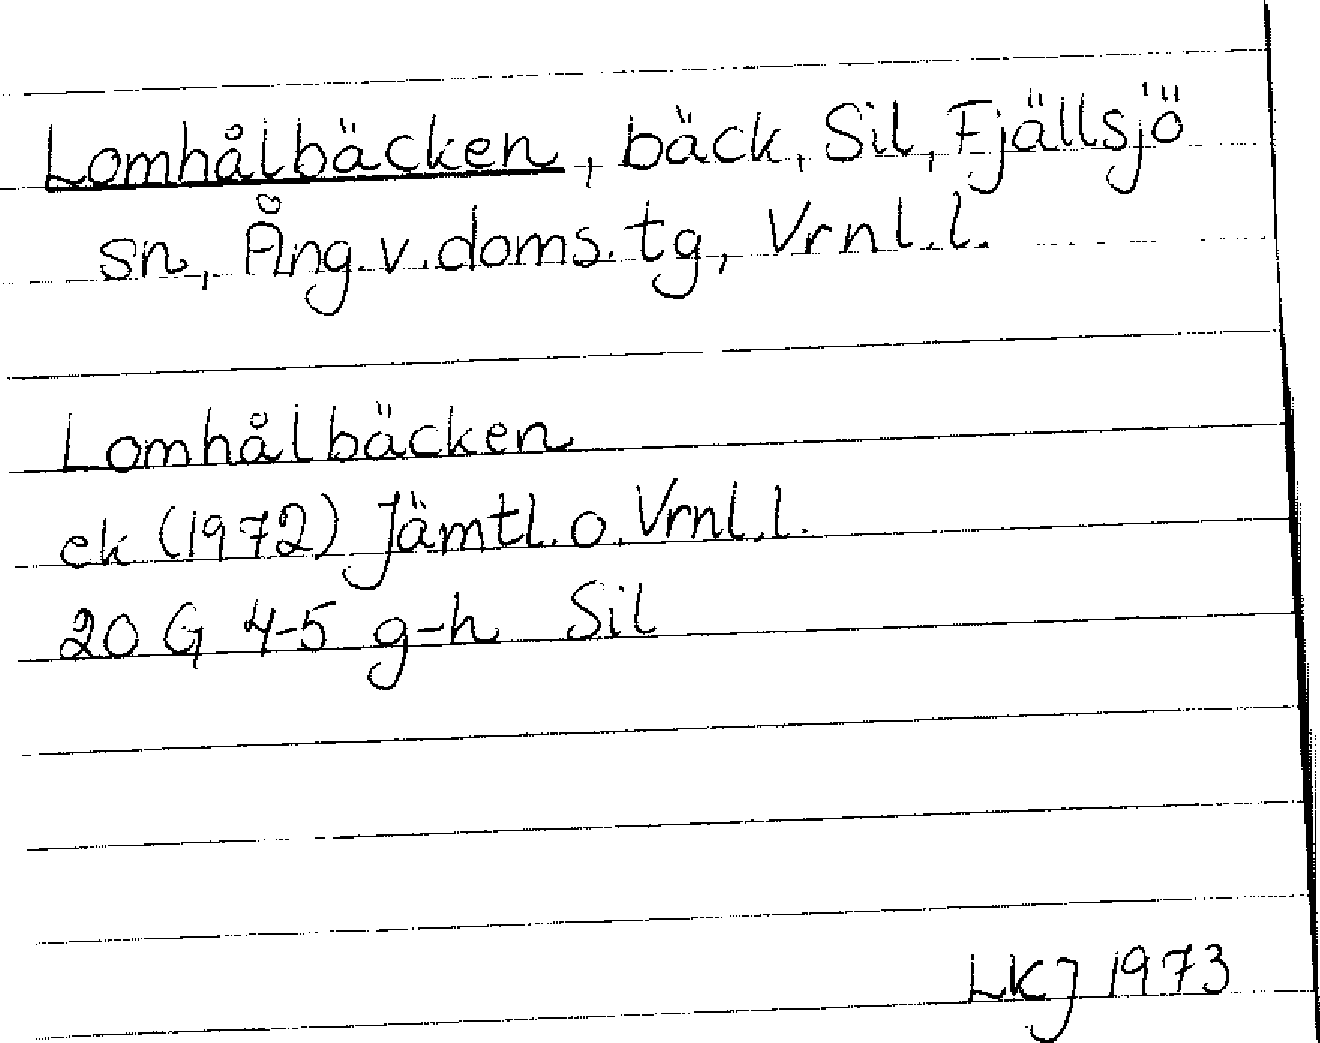 Lomhålbäcken, bäck, Sil, Fjällsjö
sn, Ång.v.doms.tg, Vrnl.l.
Lomhålbäcken
ek (1972) Jämtl.o.Vrnl.l.
20 G 4-5 g-h Sil
LKJ 1973